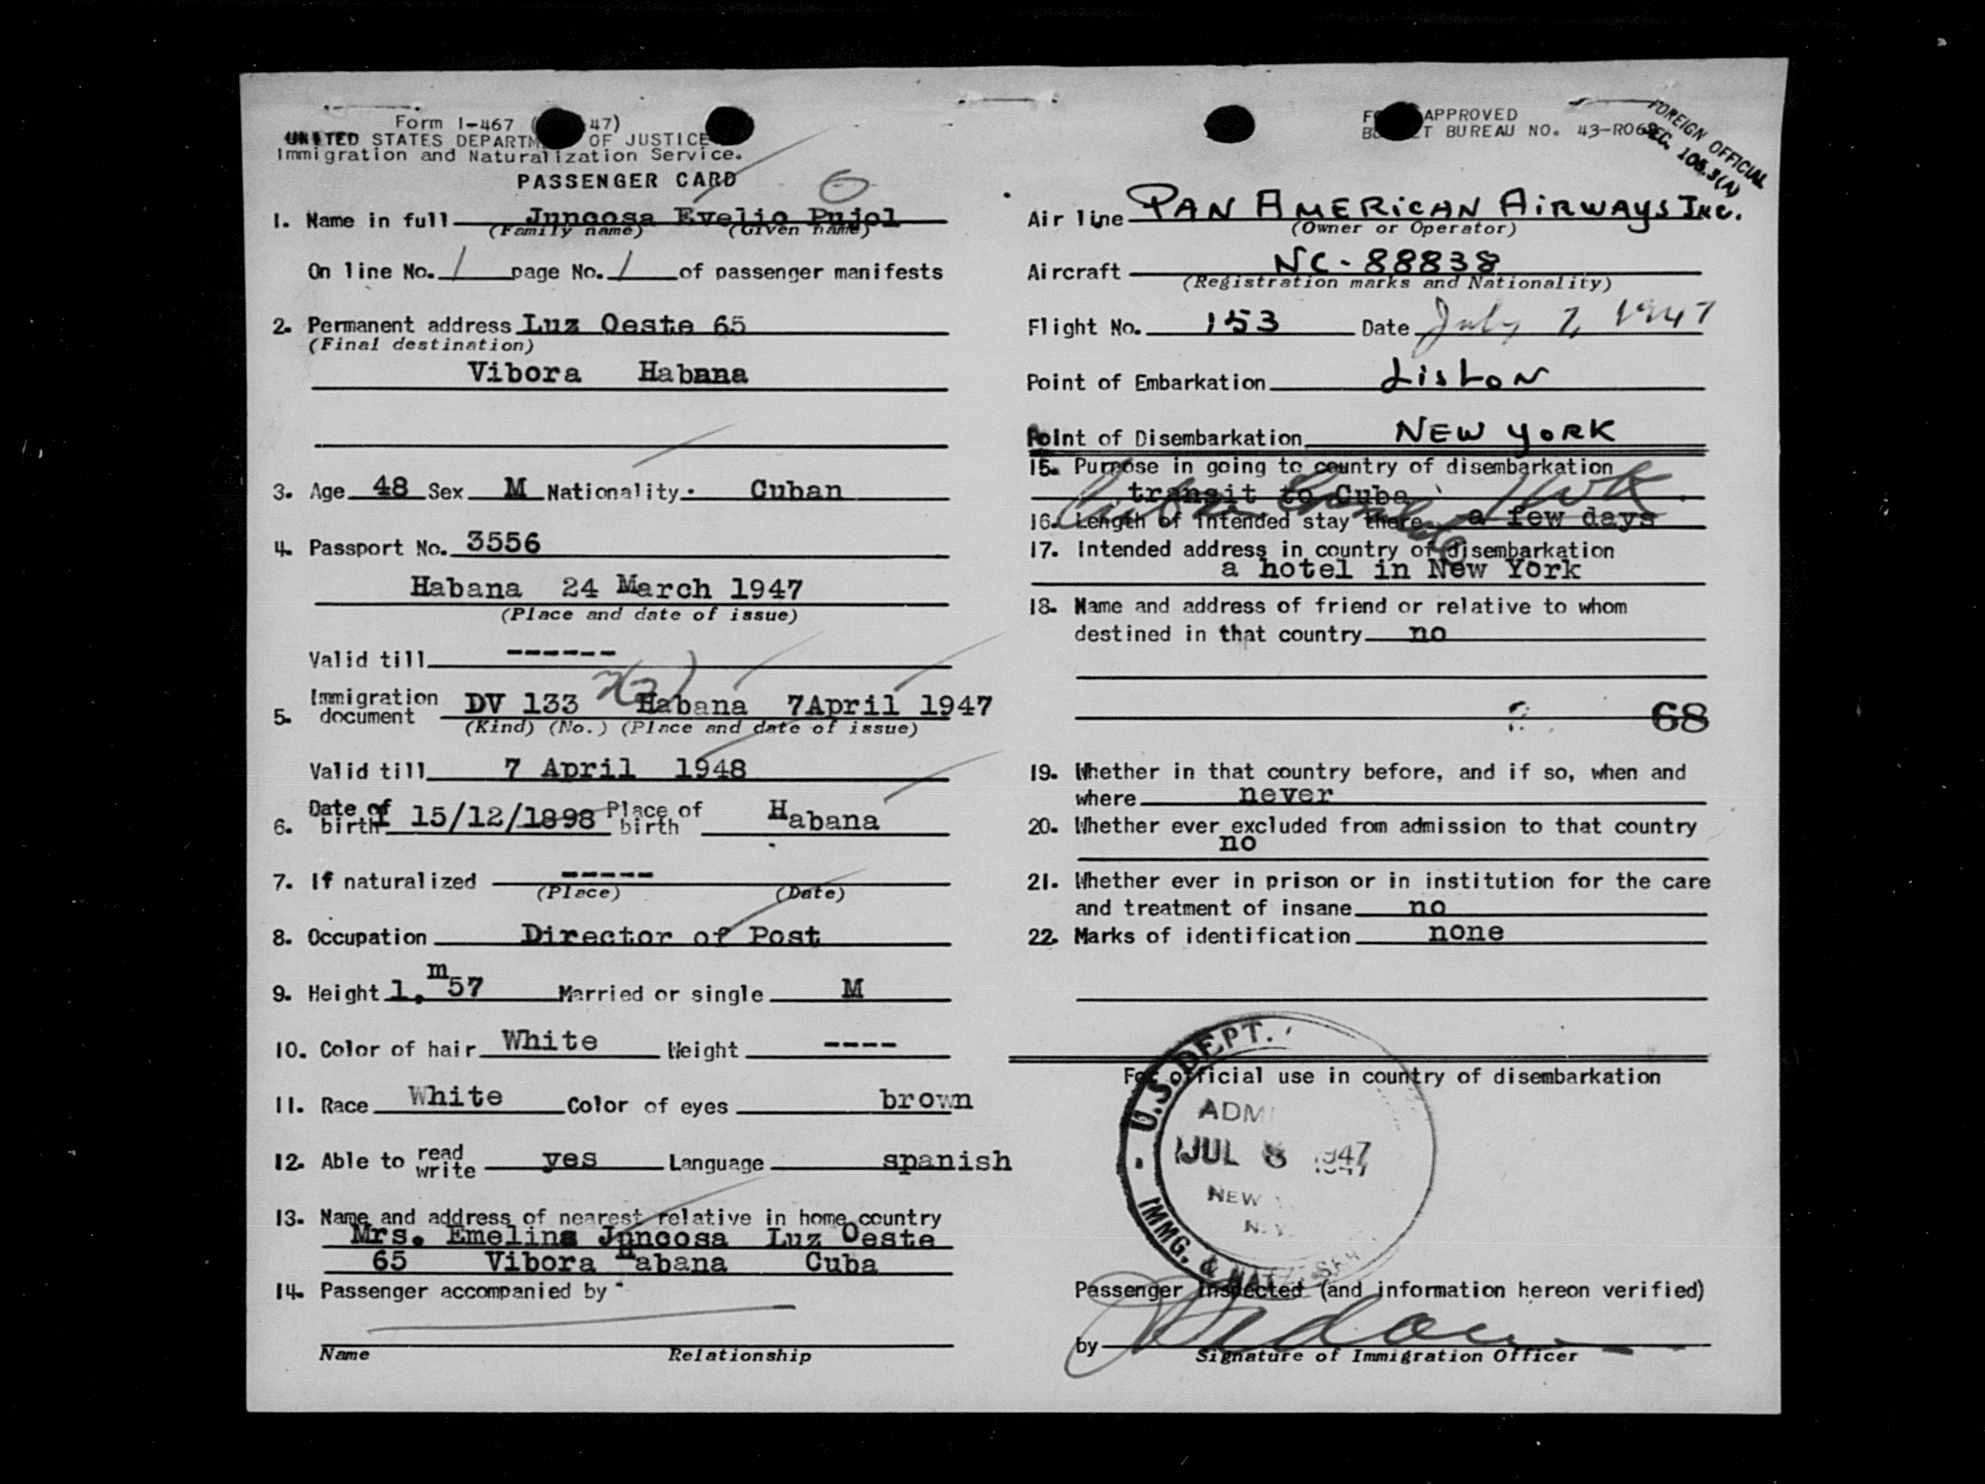 Form I-467 ( 47)
UNITED STATES DEPARTM OF JUSTICE
Immigration and Naturalization Service.
PASSENGER CARD
1. Name in full Juncosa Evelio Pujol
(Family name) (Given name)
On line No. 1 page No. 1 of passenger manifests
2. Permanent address Luz Oeste 65
(Final destination)
Vibora Habana
3. Age 48 Sex M Nationality. Cuban
4. Passport No. 3556
Habana 24 March 1947
(Place and date of issue)
Valid till ------
5. Immigration document DV 133 Habana 7April 1947
(Kind) (No.) (Place and date of issue)
Valid till 7 April 1948
6. Date of birth 15/12/1898 Place of birth Habana
7. If naturalized -----
(Place) (Date)
8. Occupation Director of Post
9. Height 1,m57 Married or single M
10. Color of hair White Weight ----
11. Race White Color of eyes brown
12. Able to read write yes Language spanish
13. Name and address of nearest relative in home country
Mrs. Emelina Juncosa Luz Oeste
65 Vibora Habana Cuba
14. Passenger accompanied by
Name Relationship
APPROVED
BUREAU NO. 43-R06
FOREIGN OFFICIAL
SEC. 108.3(A)
Air line PAN AMERICAN AIRWAYS INC.
(Owner or Operator)
Aircraft NC-88838
(Registration marks and Nationality)
Flight No. 153 Date July 7, 1947
Point of Embarkation Lisbon
Point of Disembarkation NEW YORK
15. Purpose in going to country of disembarkation
transit to Cuba
16. Length of intended stay there a few days
17. Intended address in country of disembarkation
a hotel in New York
18. Name and address of friend or relative to whom
destined in that country no
68
19. Whether in that country before, and if so, when and
where never
20. Whether ever excluded from admission to that country
no
21. Whether ever in prison or in institution for the care
and treatment of insane no
22. Marks of identification none
For official use in country of disembarkation
U.S. DEPT.
ADMI
JUL 8 1947
NEW
N.Y.
IMMG. & NATZ. SER
Passenger inspected (and information hereon verified)
by
Signature of Immigration Officer